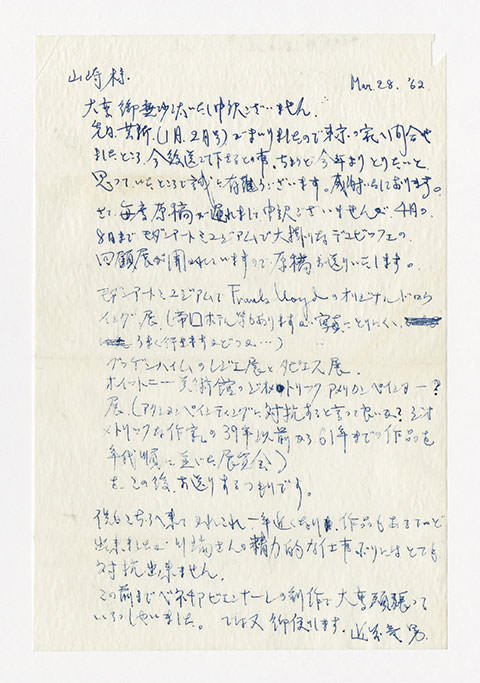 山崎様.
Mar. 28. '62
大変御無沙汰いたし申訳ございません.
先日芸新(1月、2月号)でまいりましたので東京の家へ問合せ
ましたところ、今後送って下さるとの事、ちょうど今年よりとりたいと
思っていたところで誠に有難うございます。感謝いたしております。
さて毎号原稿が遅れまして申訳ございませんが、4月の
8日までモダンアートミュジアムで大掛りなデュビッフェの
回顧展が開かれていますので、原稿お送りいたします。
モダンアートミュジアムで Frank Lloyd のオリジナルドロウ
イング展.(帝国ホテル等もありますが写真にとりにくい、
うまく行きますかどうか…)
グッゲンハイムのレジェ展とタピエス展.
ホイットニー美術館のジオメトリックアメリカンペインター?
展(アクションペインティングに対抗すると言って良いか?ジオ
メトリックな作家の39年以前から61年までの作品を
年代順に並べた展覧会)
を、この後、お送りするつもりです。
僕もこちらへ来てかれこれ一年近くなり、作品もあるていど
出来ましたが川端さんの精力的な仕事ぶりにはとても
対抗出来ません.
この前までベネチアビエンナーレの制作で大変頑張って
いらっしゃいました。ではまた御便りします.
近藤竜男.